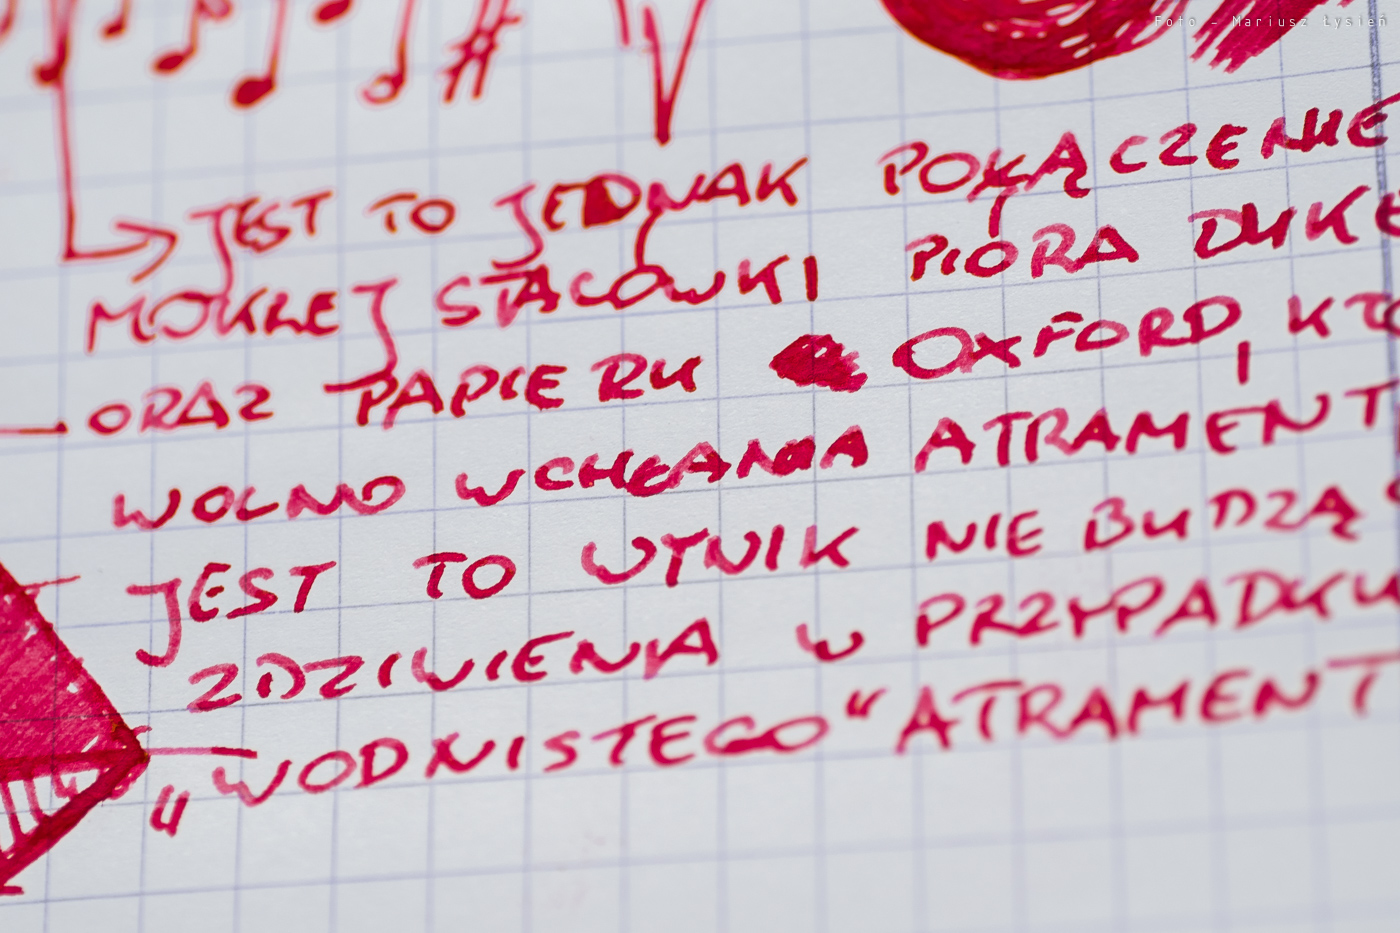 Foto - Mariusz Łysień
JEST TO JEDNAK POŁĄCZENIE
MOKREJ STALÓWKI PIÓRA DUKE
ORAZ PAPIERU OXFORD, KTÓ
WOLNO WCHŁANIA ATRAMENT
JEST TO WYNIK NIE BUDZĄC
ZDZIWIENIA W PRZYPADKU
„WODNISTEGO“ ATRAMENT